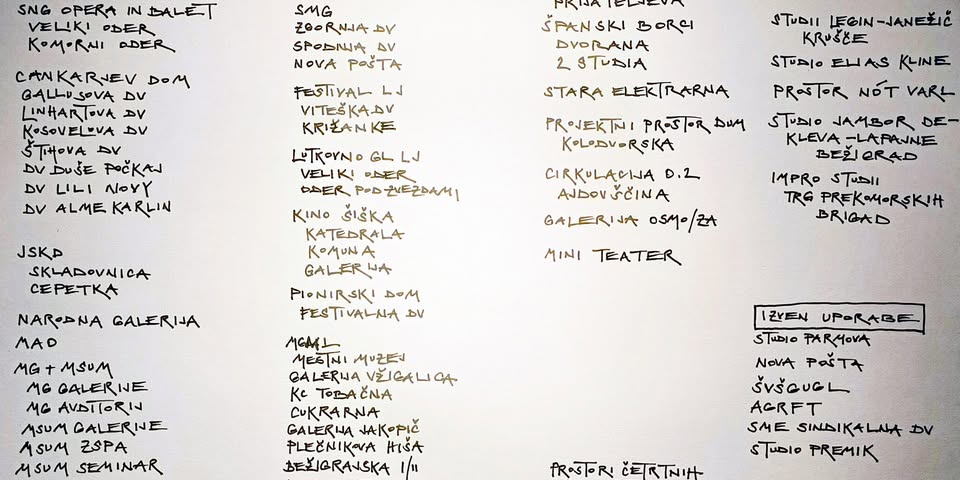 SNG OPERA IN BALET
VELIKI ODER
KOMORNI ODER
CANKARJEV DOM
GALLUSOVA DV
LINHARTOVA DV
KOSOVELOVA DV
ŠTIHOVA DV
DV DUŠE POČKAJ
DV LILI NOVY
DV ALME KARLIN
JSKD
SKLADOVNICA
CEPETKA
NARODNA GALERIJA
MAO
MG + MSUM
MG GALERIJE
MG AVDITORIJ
MSUM GALERIJE
MSUM ZSPA
MSUM SEMINAR
SMG
ZGORNJA DV
SPODNJA DV
NOVA POŠTA
FESTIVAL LJ
VITEŠKA DV
KRIŽANKE
LUTKOVNO GL LJ
VELIKI ODER
ODER POD ZVEZDAMI
KINO ŠIŠKA
KATEDRALA
KOMUNA
GALERIJA
PIONIRSKI DOM
FESTIVALNA DV
MGML
MESTNI MUZEJ
GALERIJA VŽIGALICA
KC TOBAČNA
CUKRARNA
GALERIJA JAKOPIČ
PLEČNIKOVA HIŠA
BEŽIGRAJSKA I/II
PRIJATELJEVA
ŠPANSKI BORCI
DVORANA
2 STUDIA
STARA ELEKTRARNA
PROJEKTNI PROSTOR DUM
KOLODVORSKA
CIRKULACIJA D.2
AJDOVŠČINA
GALERIJA OSMO/ZA
MINI TEATER
PROSTORI ČETRTNIH
STUDII LEGIN-JANEŽIČ
KRUŠČE
STUDIO ELIAS KLINE
PROSTOR NÓT VARL
STUDIO JAMBOR DE-
KLEVA-LAPAJNE
BEŽIGRAD
IMPRO STUDII
TRG PREKOMORSKIH
BRIGAD
IZVEN UPORABE
STUDIO PARMOVA
NOVA POŠTA
ŠVŠGUGL
AGRFT
SME SINDIKALNA DV
STUDIO PREMIK